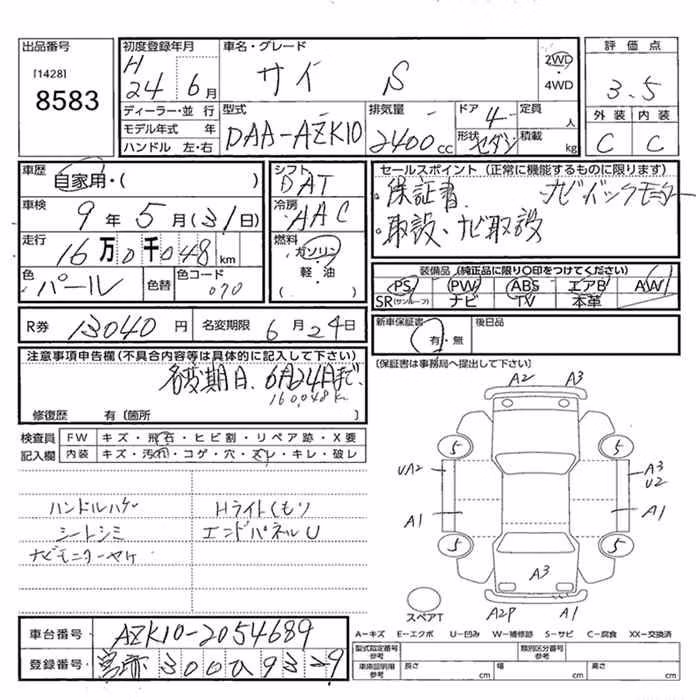 出品番号
[1428]
8583
初度登録年月
H
24 年 6 月
車名・グレード
サイ S
2WD
・
4WD
評価点
3.5
外装 内装
C C
ディーラー・並行
モデル年式 年
ハンドル 左・右
型式
DAA-AZK10
排気量
2400 cc
ドア 4
形状 セダン
定員
人
積載
kg
車歴
自家用・(
車検
9 年 5 月 (31) 日
走行
16 万 0 千 048 km
色
パール
色替
色コード
070
シフト
DAT
冷房
AAC
燃料
ガソリン
軽・油
( )
セールスポイント (正常に機能するものに限ります)
・保証書. ナビバックモニター
・取説、ナビ取説
装備品 (純正品に限り○印をつけてください)
PS PW ABS エアB AW
SR(サンルーフ) ナビ TV 本革
R券 13040 円
名変期限 6 月 24 日
新車保証書
有・無
後日品
注意事項申告欄 (不具合内容等は具体的に記入して下さい)
名変期日、6月24日まで.
160,048km
修復歴 有 〔箇所 〕
〔保証書は事務局へ提出して下さい〕
検査員
記入欄
FW キズ・飛石・ヒビ割・リペア跡・X要
内装 キズ・汚れ・コゲ・穴・スレ・キレ・破レ
ハンドルハゲ Hライトくもり
シートシミ エンドパネルU
ナビモニターヤケ
A2 A3
5 5
UA2 A3
U2
A1 A1
5 5
A3
スペアT
A2P A1
車台番号 AZK10-2054689
登録番号
A-キズ E-エクボ U-凹み W-補修跡 S-サビ C-腐食 XX-交換済
型式指定番号
参考
類別区分番号
参考
車庫証明用
参考
長さ
cm
幅
cm
高さ
cm